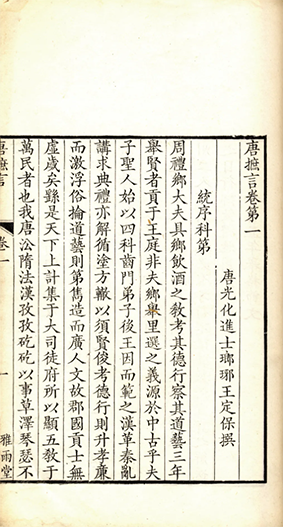 唐摭言卷第一
唐光化進士瑯琊王定保撰
統序科第
周禮鄉大夫具鄉飲酒之敎考其德行察其道藝三年
舉賢者貢于王庭非夫鄉舉里選之義源於中古乎夫
子聖人始以四科齒門弟子後王因而範之漢革秦亂
講求典禮亦解循塗方轍以須賢俊考德行則升孝廉
而激浮俗掄道藝則第雋造而廣人文故郡國貢士無
虛歲矣繇是天下上計集于大司徒府所以顯五敎于
萬民者也我唐㳂隋法漢孜孜矻矻以事草澤琴瑟不
唐摭言
卷一
一
雅雨堂